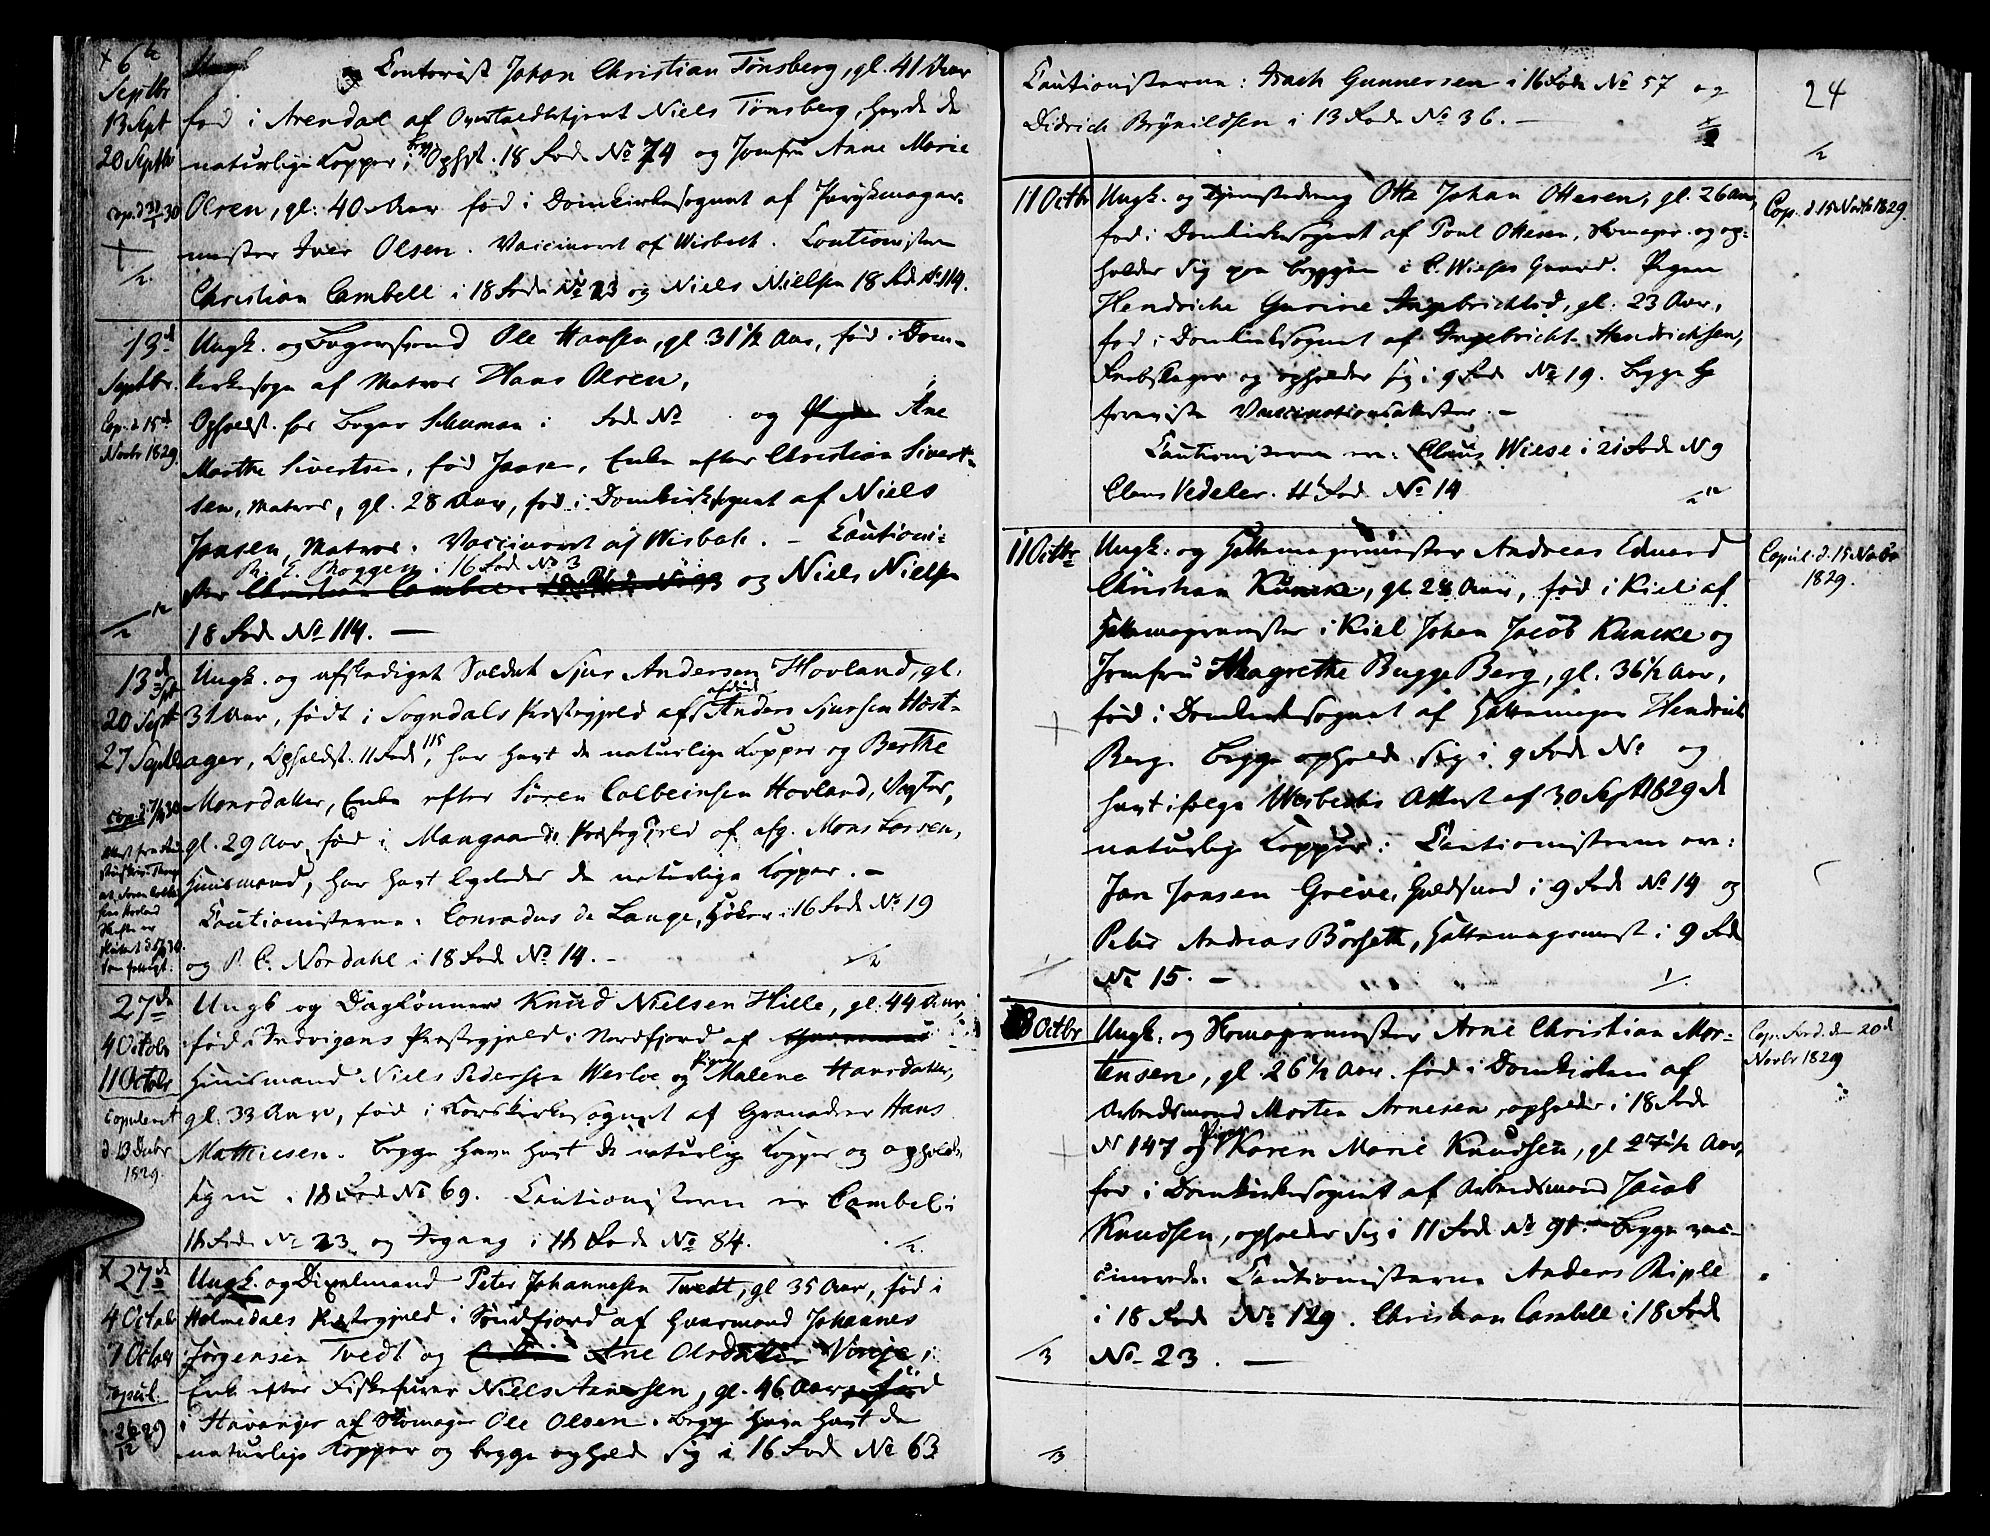 6te
Septbr
13 Sept
20 Septbr
Contorist Johan Christian Tønsberg, gl. 41 Aar
fød i Arendal af Overtoldbetjent Niels Tønsberg, havde de
naturlige Kopper, Ophold. 18 Rode No 74 og Jomfru Anne Marie
Olsen, gl. 40 Aar fød i Domkirkesognet af Parykmager-
mester Iver Olsen. Vaccineret af Wisbech. Cautionisterne
Christian Cambell i 18 Rode No 23 og Niels Nielsen 18 Rode No 114.
13de
Septbr.
Cop. d 15de
Novbr 1829.
Ungk. og Bagersvend Ole Hansen, gl. 31 1/2 Aar, fød i Dom-
kirkesogn af Matros Hans Olsen,
Opholdst. hos Bager Schuman i Rode No og Ane
Marthe Sivertsen, fød Jansen, Enke efter Christian Sivert-
sen, Matros, gl. 28 Aar, fød i Domkirkesognet af Niels
Jansen, Matros. Vaccineret af Wisbech. – Cautioni-
i 16 Rode No 3
ster Christian Cambel 18 Rode No 23 og Niels Nielsen
18 Rode No 114. —
13de Spt
20 Sept
27 Septb
Ungk. og afskediget Soldat Sjur Andersen Hovland, gl.
31 Aar, født i Sogndals Præstegjeld af afdød Anders Sjursen Høst-
ager, Opholdst. 11 Rode 115, har havt de naturlige Kopper og Berthe
Monsdatter, Enke efter Søren Colbeinsen Hovland, Vægter,
gl. 29 Aar, fød i Mangers Præstegjeld af afg. Mons Larsen,
Huusmand, har havt ligeledes de naturlige Kopper. –
Cautionisterne: Conradus de Lange, Høker i 16 Rode No 19
og P. C. Nordahl i 18 Rode No 14. –
27de
4 Octobr
11 Octobr
Copuleret
1829.
Ungk og Daglønner Knud Nielsen Hille, gl. 44 Aar,
fød i Indvigens Præstegjeld i Nordfjord af
Huusmand Niels Pedersen Werloe og Pigen Malene Hansdatter,
gl. 33 Aar, fød i Korskirkesognet af Granadeer Hans
Mathiesen. Begge have havt de naturlige Kopper og opholde
sig nu i 18 Rode No 69. Cautionisterne er Cambel i
18 Rode No 23 og Fogang i 18 Rode No 84.
27de
4 Octobr
Copul.
Ungk. og Dixelmand Peter Johannesen Tvedt, gl 35 Aar, fød i
Holmedals Præstegjeld i Søndfjord af Gaardmand Johannes
Jørgensen Tvedt og Ane Olsdatter Vinje,
Enke efter Fiskefører Niels Arnesen, gl. 46 Aar, fød
i Stavanger af Skomager Ole Olsen. Begge have havt de
naturlige Kopper og begge ophold sig i 16 Rode No 63
24
Cautionisterne: Isach Gunnersen i 16 Rode No 57 og
Didrich Brynildsen i 13 Rode No 36. –
11 Octbr
Ungk. og Otto Johan Ottesen, gl. 26 Aar,
fød i Domkirkesognet af Poul Ottesen, Skomager og op-
holder sig paa Bryggen i C. Wieses Gaard. Pigen
Hendriche Gurine Ingebrichtsd, gl. 23 Aar,
fød i Domkirkesognet af Ingebricht Hendrichsen,
og opholder sig i 9 Rode No 19. Begge
foreviste Vaccinationsattester. –
Cautionisterne ere: Claus Wiese i 21 Rode N 9
Claus Vedeler. 11 Rode No 14
Cop. d. 15 Novbr 1829.
11 Octbr
Ungk. og Hattemagermester Andreas Eduard
Christian Kuncke, gl. 28 Aar, fød i Kiel af
Hattemagermester i Kiel Johan Jacob Kuncke og
Jomfru Magrethe Bugge Berg, gl. 36 1/2 Aar,
fød i Domkirkesognet af Hattemager Hendrich
Berg. Begge opholde sig i 9 Rode No og
havt ifølge Wisbechs Attest af 30 Sept 1829 de
naturlige Kopper. Cautionisterne ere:
Jan Jansen Greve, Guldsmed i 9 Rode No 14 og
Peter Andreas Börseth, Hattemagermest i 9 Rode
No 15. –
Copul. d. 15 Novbr
1829.
18 Octbr
Ungk. og Skomagermester Arne Christian Mor-
tensen, gl. 26 1/2 Aar. fød i Domkirken af
Arbeidsmand Morten Arnesen, opholder i 18 Rode
N 147 og Pigen Karen Marie Knudsen, gl 27 1/2 Aar,
fød i Domkirkesognet af Arbeidsmand Jacob
Knudsen, opholder sig i 11 Rode No 91. – Begge vac-
cinerede. Cautionisterne Anders Riple
i 18 Rode No 129. Christian Cambell i 18 Rode
No. 23. —
Cop. Fred. den 20de
Novbr 1829